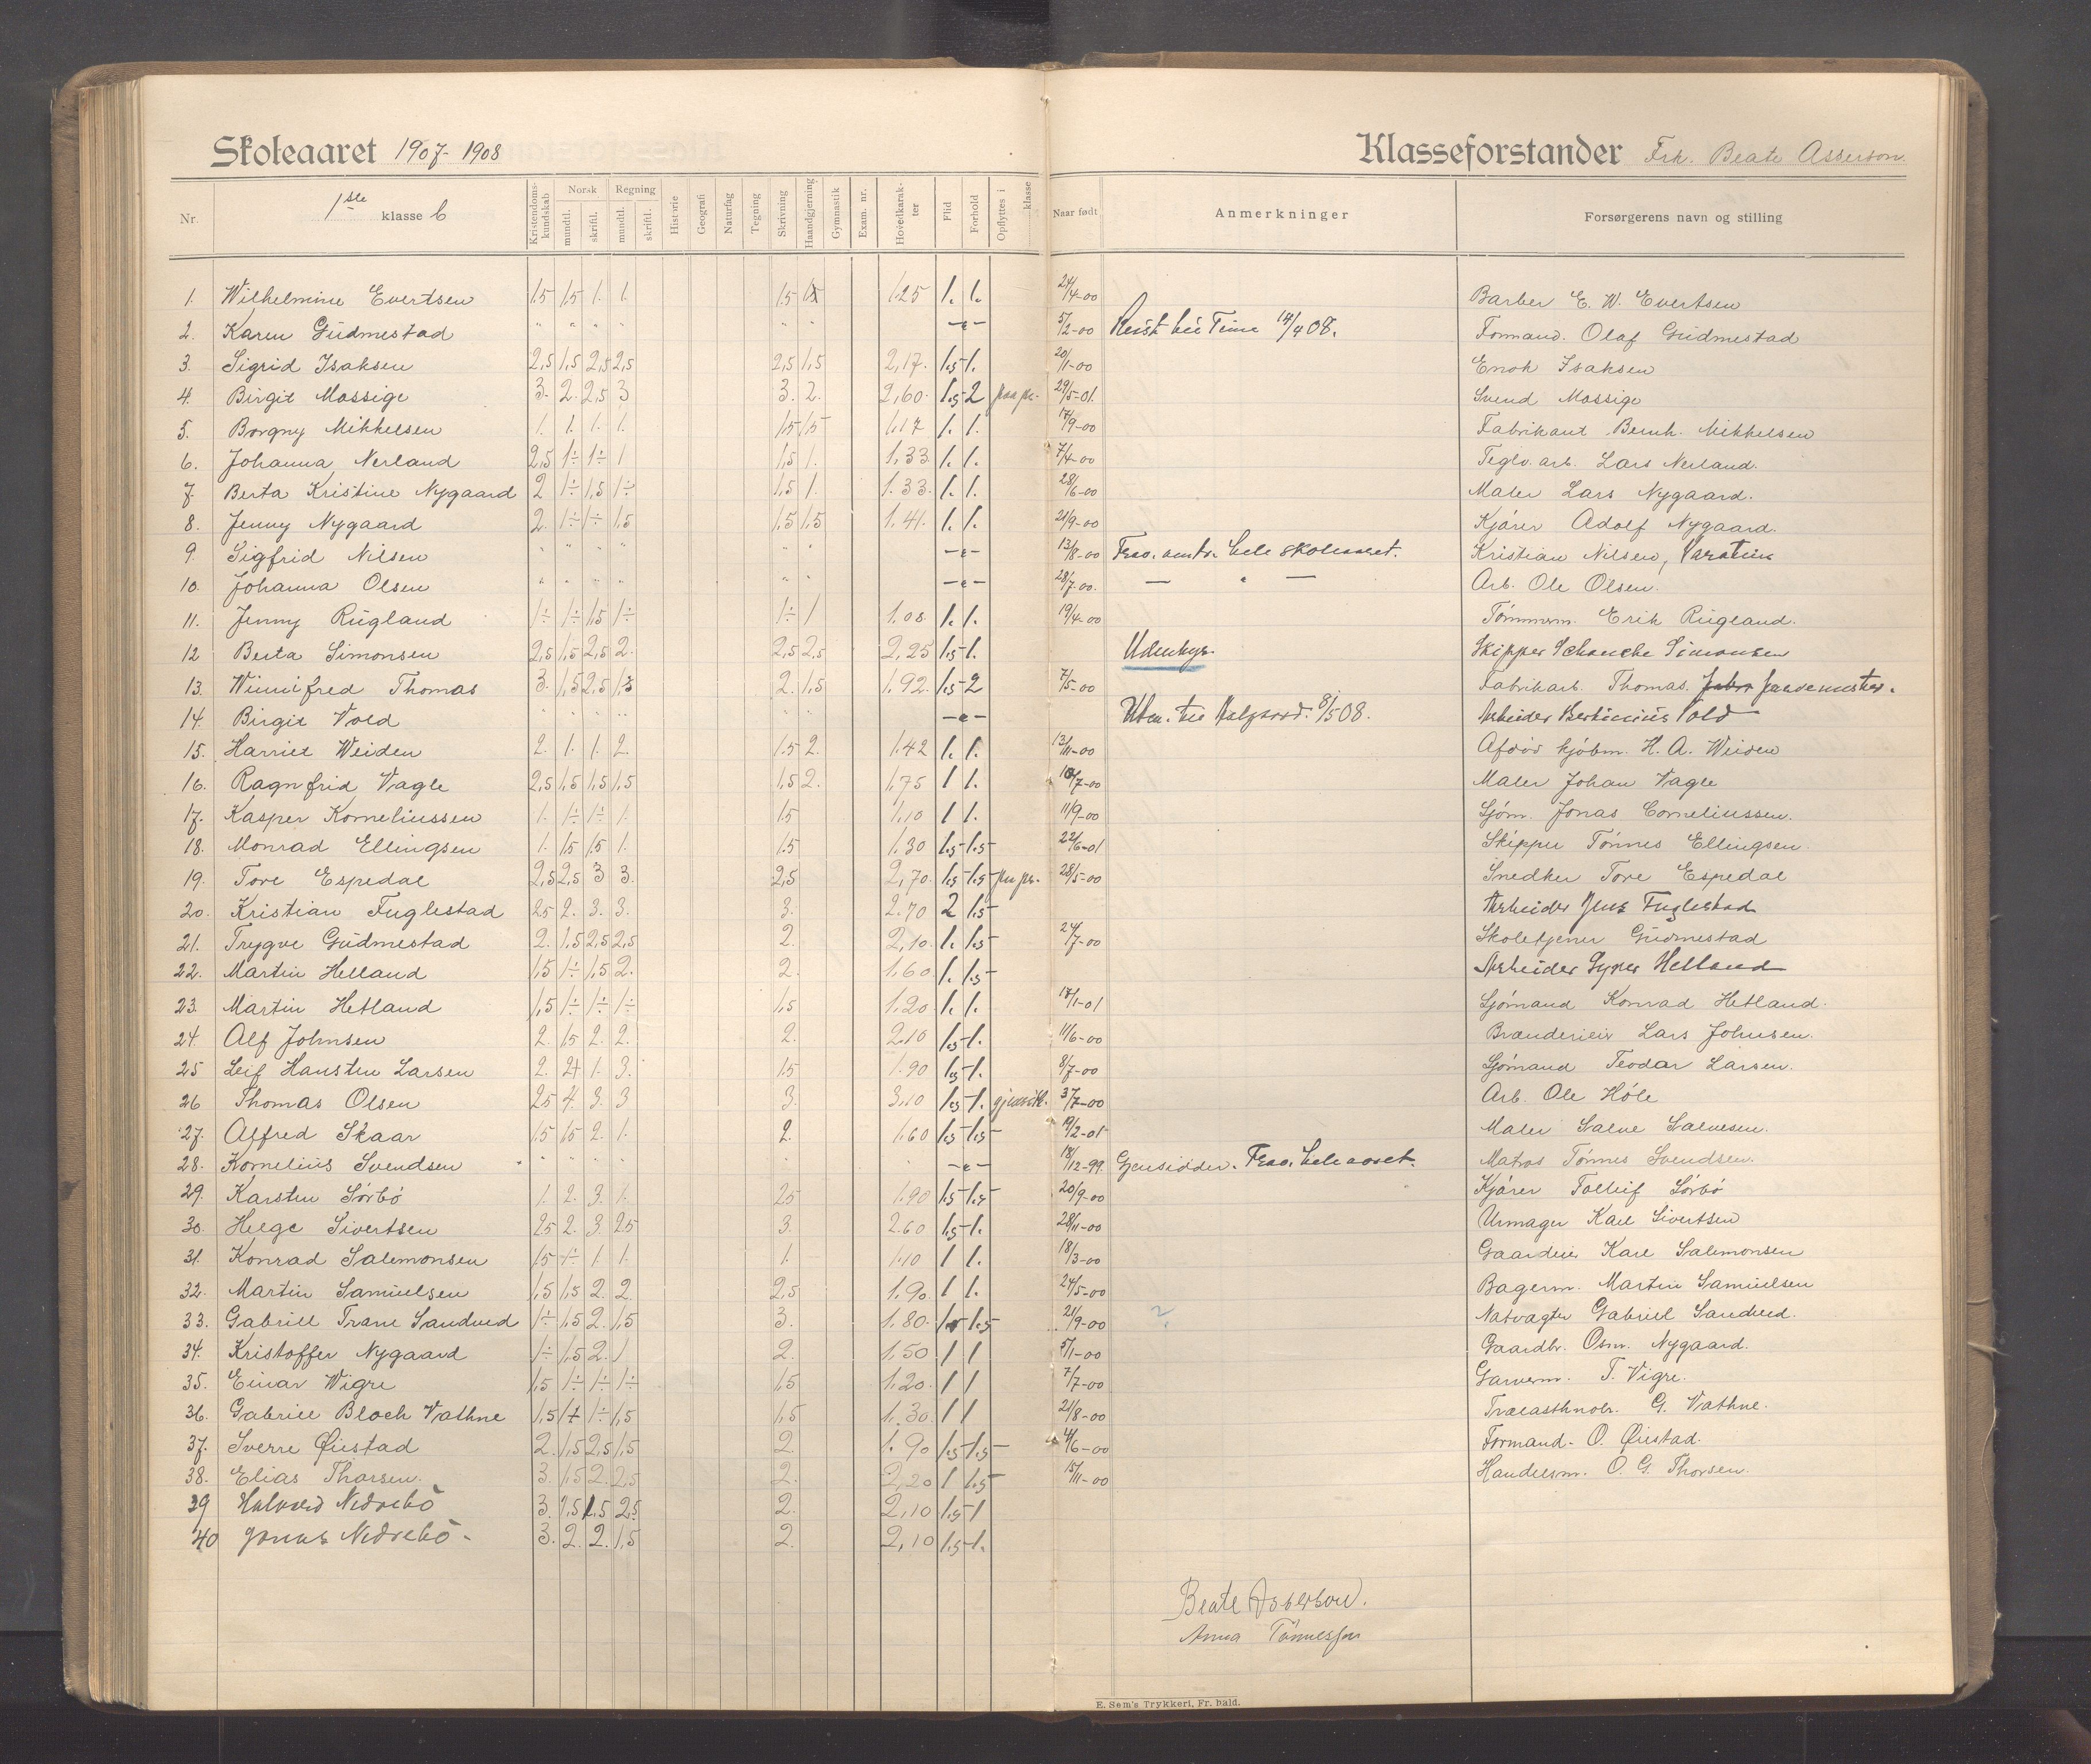 Skoleaaret 1907-1908 Klasseforstander Frk. Beate Asserson.
Nr. 1ste klasse b Kristendomskundskab Norsk mundtl. skriftl. Regning mundtl. skriftl. Historie Geografi Naturfag Tegning Skrivning Haandgjerning Gymnastik Exam. nr. Hovedkarakter Flid Forhold Opflyttes i klasse Naar født Anmerkninger Forsørgerens navn og stilling
1. Wilhelmine Evertsen 1.5 1.5 1. 1. 1.5 1.5 1.25 1. 1. 24/4-00 Barber E. W. Evertsen
2. Karen Gudmestad " " " " " " -"- 5/2-00 Reist til Time 14/4 08. Formand. Olaf Gudmestad
3. Sigrid Isaksen 2,5 1,5 2,5 2,5 2,5 1,5 2,17. 1.5 1. 20/1-00 Enok Isaksen
4. Birgit Mossige 3. 2. 2,5 3 3. 2. 2,60. 1.5 2 paa pr. 29/5-01. Svend Mossige
5. Borgny Mikkelsen 1. 1. 1. 1. 1.5 1.5 1.17 1. 1. 17/9-00 Fabrikant Bernh. Mikkelsen
6. Johanna Nerland 2,5 1÷ 1÷ 1 1,5 1. 1,33. 1. 1. 7/4-00 Teglv. arb. Lars Nerland.
7. Berta Kristine Nygaard 2 1÷ 1,5 1÷ 1,5 1. 1.33. 1. 1. 28/6-00 Maler Lars Nygaard.
8. Jenny Nygaard 2. 1÷ 1÷ 1,5 1,5 1,5 1.41. 1. 1. 21/9-00 Kjører Adolf Nygaard.
9. Sigfrid Nilsen " " " " " " -"- 13/8-00 Frav. omtr. hele skoleaaret. Kristian Nilsen,
10. Johanna Olsen " " " " " " -"- 28/7-00. — " — Arb. Ole Olsen.
11. Jenny Rugland 1÷ 1÷ 1,5 1÷ 1÷ 1 1.08. 1. 1. 19/4-00 Tømmerm. Erik Rugland.
12 Berta Simonsen 2,5 1,5 2,5 2. 2,5 2,5 2,25 1.5 1. Udenbys. Skipper Schanche Simonsen
13. Winnifred Thomas 3. 1,5 2,5 1,5 2. 1,5 1,92. 1.5 2 7/5-00 Fabrikarb. Thomas.
14. Birgit Vold " " " " " " -"- Utm. til Aalgaard. 8/5 08. Arbeider Bertinius Vold
15. Harriet Weiden 2. 1. 1. 2. 1.5 2. 1.42 1. 1. 13/11-00 Afdød kjøbm. H. A. Weiden
16. Ragnfrid Vagle 2,5 1,5 1,5 1,5 1,5 2. 1,75 1 1. 10/7-00 Maler Johan Vagle
17. Kasper Korneliussen 1. 1÷ 1÷ 1. 1.5 1.10 1 1. 11/9-00 Sjøm. Jonas Corneliussen.
18. Monrad Ellingsen 1. 1.5 1.5 1. 1.5 1.30 1.5 1.5 22/6-01 Skipper Tønnes Ellingsen.
19. Tore Espedal 2,5 2,5 3 3. 2,5 2,70. 1.5 1.5 paa pr. 28/5-00 Snedker Tore Espedal
20. Kristian Fuglestad 2.5 2. 3. 3. 3. 2.70 2 1.5 Arbeider Jens Fuglestad
21. Trygve Gudmestad 2. 1.5 2,5 2,5 2. 2,10. 1. 1.5 24/7-00 Skoletjener Gudmestad
22. Martin Helland 1,5 1÷ 1,5 2. 2. 1.60 1. 1.5 Arbeider Helland
23. Martin Hetland 1,5 1÷ 1÷ 1÷ 1,5 1.20. 1. 1. 17/1-01 Sjømand Konrad Hetland.
24. Alf Johnsen 2. 1.5 2. 2. 2. 2.10 1.5 1. 11/6-00 Brænderieier Lars Johnsen.
25 Leif Hansten Larsen 2. 2.4 1. 3. 1.5 1.90 1.5 1. 8/7-00 Sjømand Teodor Larsen.
26 Thomas Olsen 2.5 4. 3. 3 3. 3.10 1.5 1. 3/7-00 Arb. Ole Høle
27. Alfred Skaar 1.5 1.5 2. 1. 2. 1.60 1.5 1.5 19/2-01 Maler Salve Salvesen.
28. Kornelius Svendsen " " " " -"- 18/12-99. Gjensidder. Frav. hele aaret. Matros Tønnes Svendsen.
29. Karsten Sørbø 1. 2. 3. 1. 2.5 1.90 1.5 1.5 20/9-00 Kjører Tolleif Sørbø
30. Helge Sivertsen 2.5 2. 3. 2.5 3. 2.60 1.5 1. 28/11-00 Urmager Karl Sivertsen
31. Konrad Salemonsen 1.5 1÷ 1 1. 1. 1.10 1 1. 18/3-00 Gaardeier Karl Salemonsen
32. Martin Samuelsen 1,5 1,5 2. 2. 2,5 1.90. 1 1. 24/5-00 Bagerm. Martin Samuelsen
33. Gabriel Trane Sandved 1÷ 1.5 2. 1,5 3. 1.80. 1.5 1.5 21/9-00 ? Natvagter Gabriel Sandved.
34. Kristoffer Nygaard 1÷ 1,5 2. 1 2. 1,50 1 1 5/1-00 Gaardbr. Osm. Nygaard.
35. Einar Wigre 1,5 1÷ 1÷ 1÷ 1,5 1.20. 1 1 7/7-00 Garverm. T. Vigre.
36. Gabriel Bloch Vathne 1,5 1÷ 1÷ 1,5 1,5 1.30. 1 1 21/8-00 Trælasthndlr. G. Vathne.
37. Sverre Øiestad 2. 1,5 2,5 1,5 2. 1.90 1.5 1.5 4/6-00 Formand- O. Øiestad.
38. Elias Thorsen. 3. 1,5 2. 2,5 2. 2,20 1 1.5 15/11-00 Handelsm. O. G. Thorsen.
39 Halvard Nedrebø 3. 1,5 1.5 2,5 2. 2,10 1.5 1
40 Jonas Nedrebø- 3. 2. 2. 1,5 2. 2,10 1.5 1.
Beate Asserson.
Anna Tønnessen
E. Sem's Trykkeri, Fr. hald.